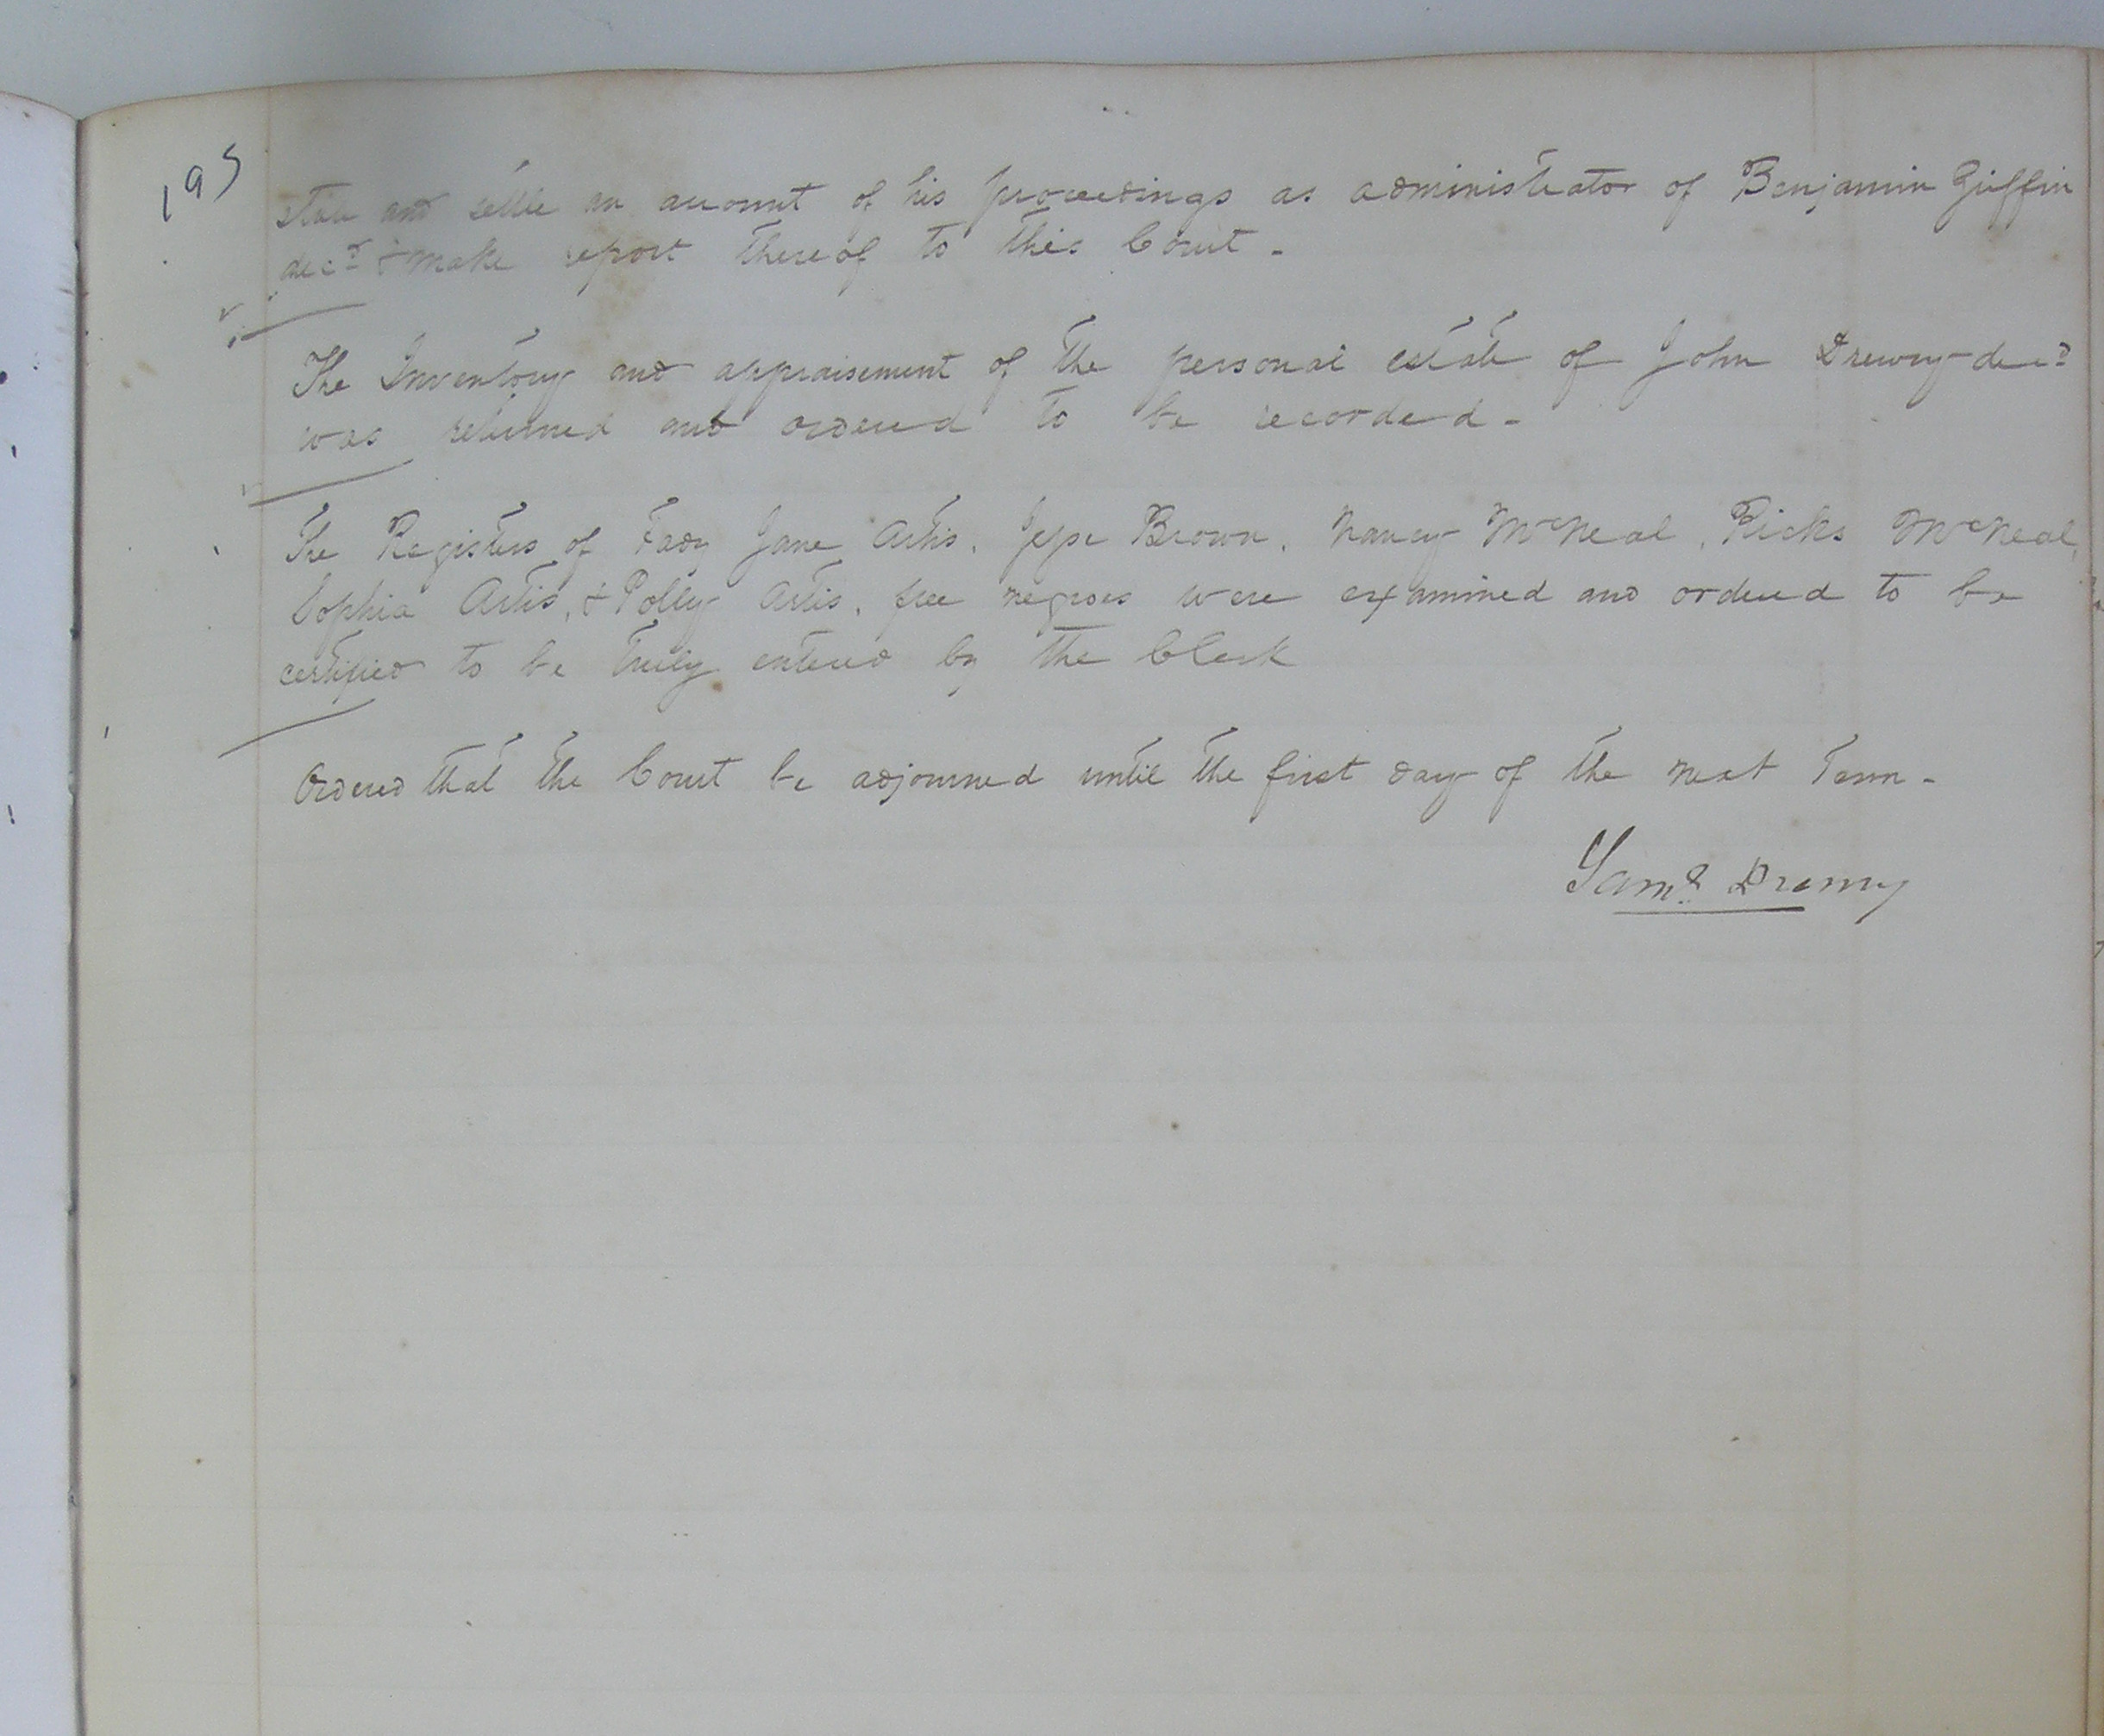 195
state and settle an account of his proceedings as administrator of Benjamin Griffin
decd & make report thereof to this Court -
The Inventory and appraisement of the personal estate of John Drewry decd
was returned and ordered to be recorded -
The Registers of Jane Artis, Jesse Brown, Nancy McNeal, Ricks McNeal,
Sophia Artis, & Polly Artis, free negroes were examined and ordered to be
certified to be truly entered by the Clerk
Ordered that the Court be adjourned until the first day of the next Term -
Saml. Drewry